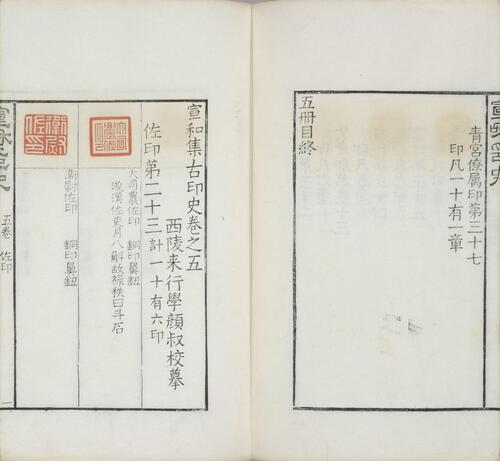 青宮僚属印第三十七
印凡一十有一章
五冊目終
宣和集古印史卷之五
西陵来行學顏叔校摹
佐印第二十三計一十有六印
大司農佐印 銅印鼻鈕
後漢佐吏月八斛故祿秩曰斗石
衛尉佐印
衛尉佐印 銅印鼻鈕
五卷 佐印 一